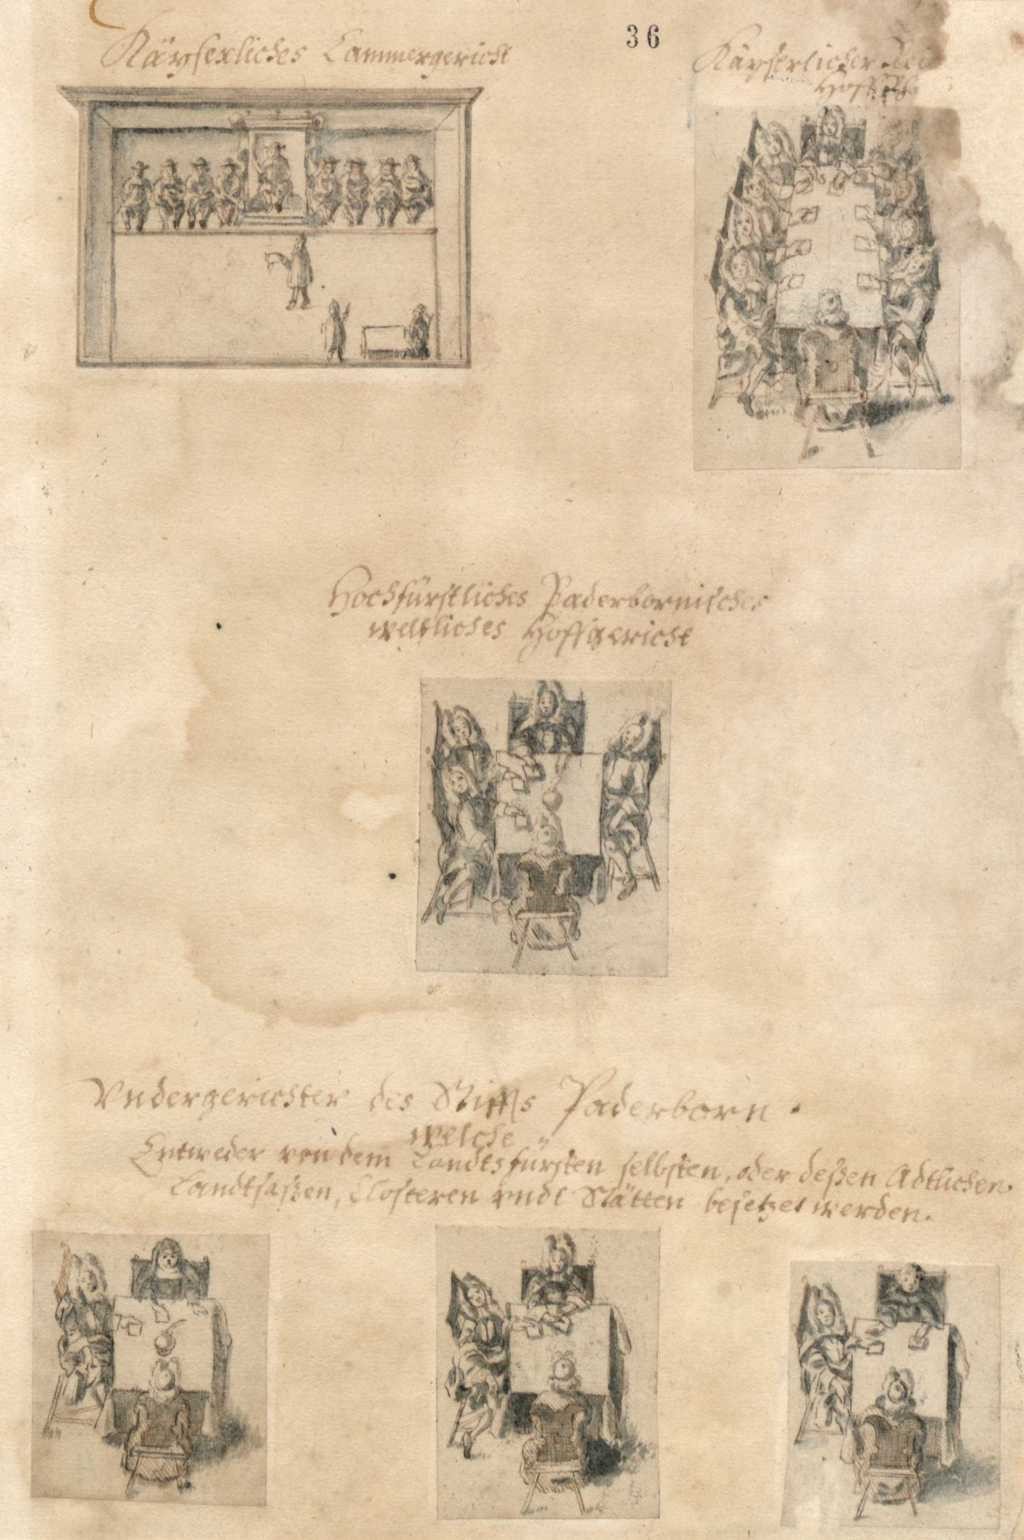 36
Käyserliches Cammergericht
Käyserlicher
Hoff
Hochfürstliches Paderbornisches
weltliches Hoffgericht
Vndergerichter des Stiffts Paderborn.
welche
Entweder von dem Landtsfürsten selbsten, oder deßen Adtlichen
Landtsaßen, Clösteren vndt Stätten besetzet werden.